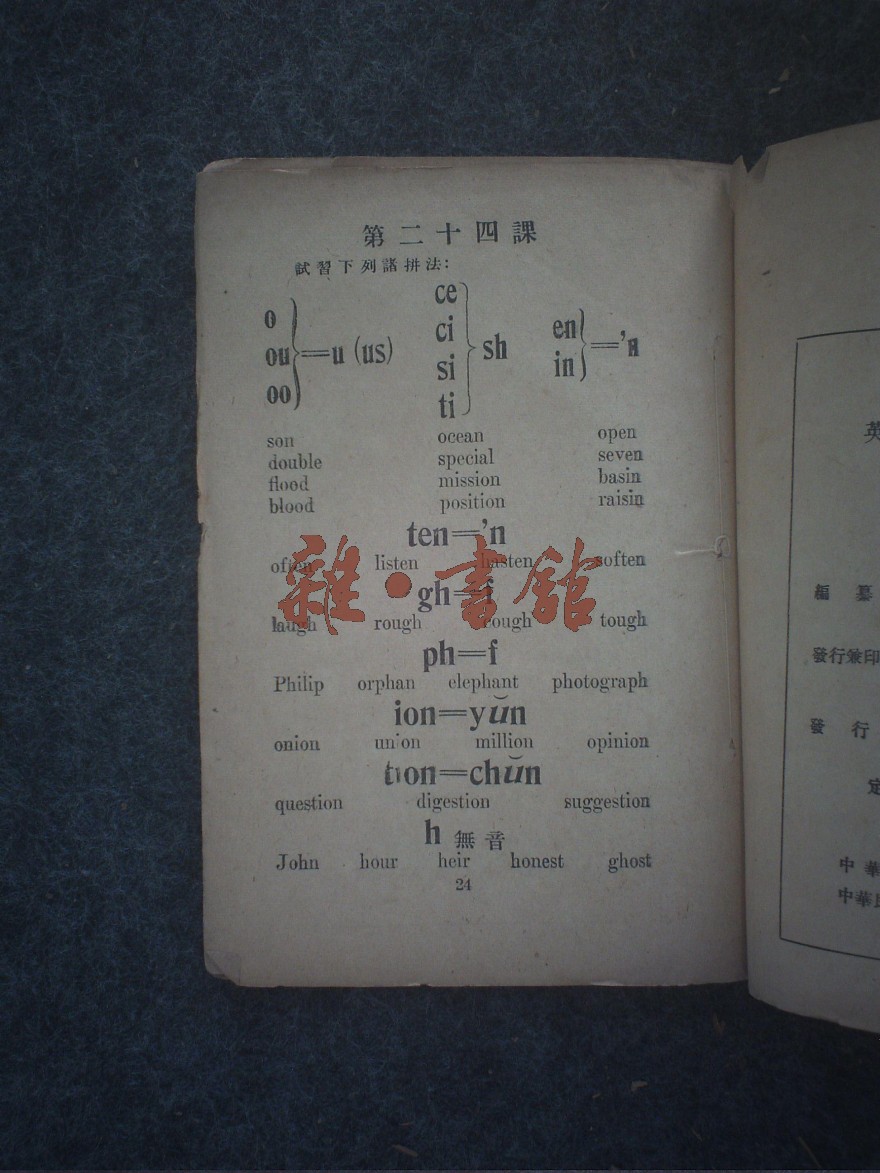 第二十四課
試習下列諸拼法：
o
ou
oo
=u (us)
ce
ci
si
ti
sh
en
in
='n
son ocean open
double special seven
flood mission basin
blood position raisin
ten='n
often listen hasten soften
gh=f
laugh rough cough tough
ph=f
Philip orphan elephant photograph
ion=yŭn
onion union million opinion
tion=chŭn
question digestion suggestion
h 無音
John hour heir honest ghost
24
雜·書館
英
編 纂
發行兼印
發行
定
中華
中華民